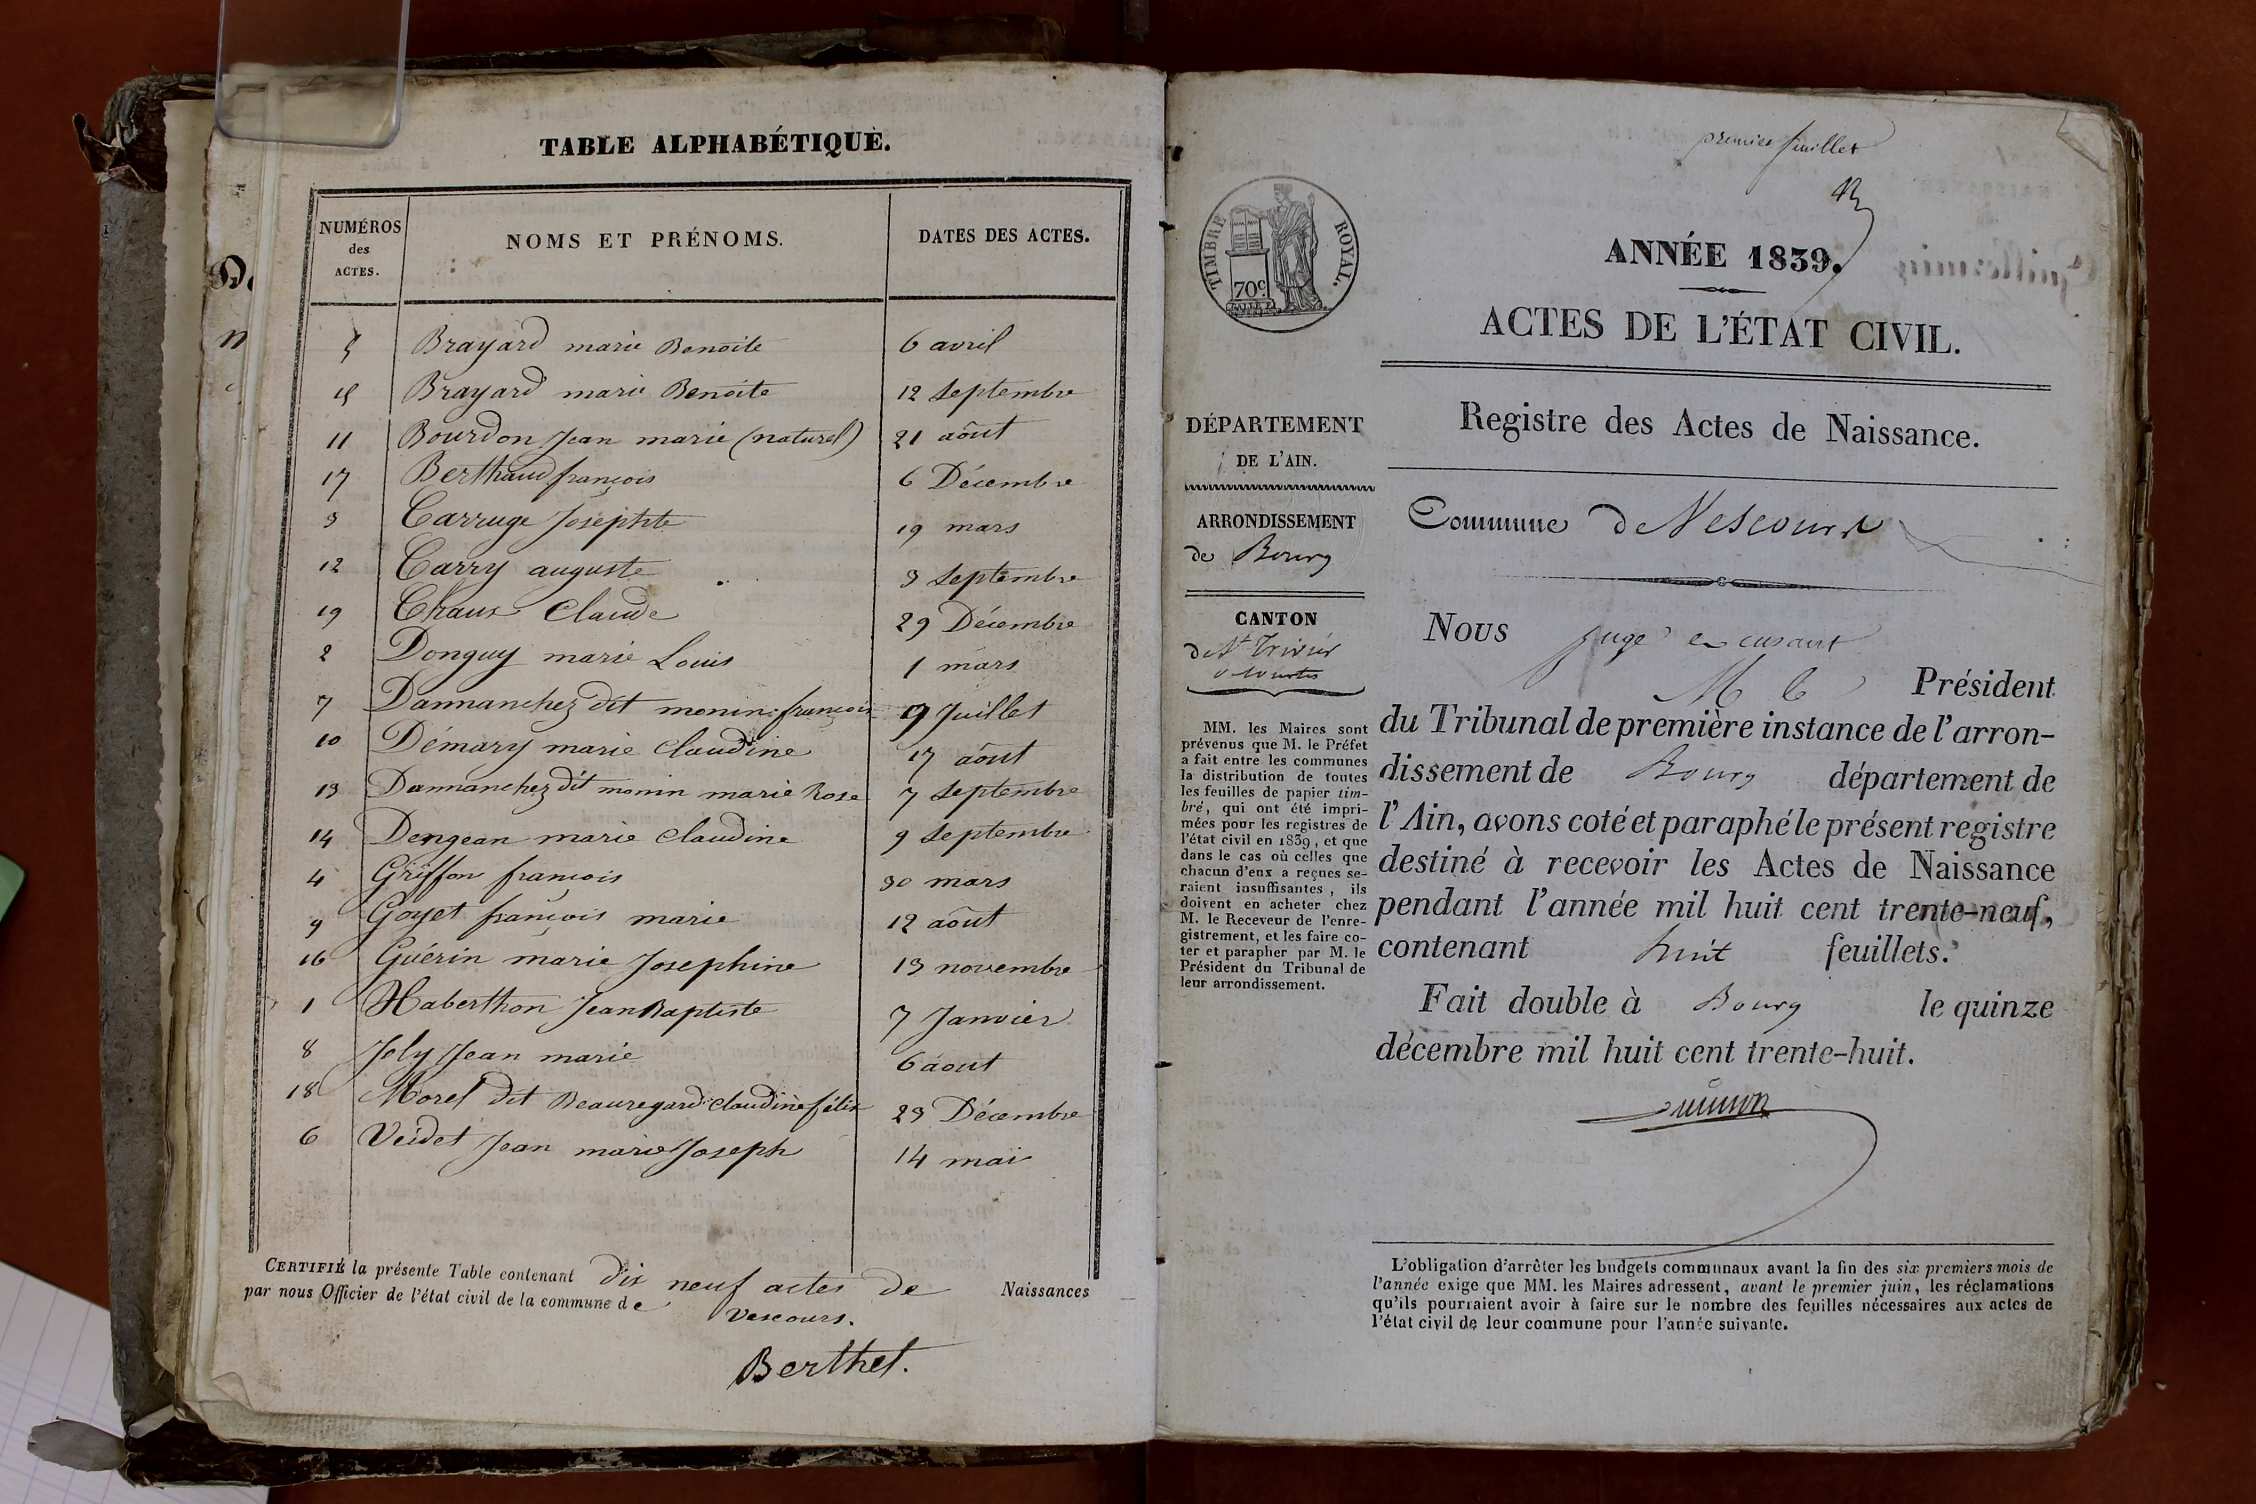 TABLE ALPHABÉTIQUE.
NUMÉROS des ACTES. NOMS ET PRÉNOMS. DATES DES ACTES.
5 Brayard marie Benoite 6 avril
15 Brayard marie Benoite 12 Septembre
11 Bourdon Jean marie (naturel) 21 août
17 Berthaud françois 6 Décembre
3 Carruge Josephte 19 mars
12 Carry auguste 3 Septembre
19 Chaux Claude 29 Décembre
2 Donguy marie Louis 1 mars
7 Dannanchez dit monin françois 9 Juillet
10 Démary marie Claudine 17 août
13 Dannanchez dit monin marie Rose 7 Septembre
14 Dengean marie Claudine 9 Septembre
4 Griffon françois 30 mars
9 Goyet françois marie 12 août
16 Guérin marie Josephine 13 novembre
1 Haberthon Jean Baptiste 7 Janvier
8 Joly Jean marie 6 aout
18 Morel dit Beauregard Claudine félix 23 Décembre
6 Veidet Jean marie Joseph 14 mai
CERTIFIÉ la présente Table contenant dix neuf actes de Naissances
par nous Officier de l'état civil de la commune de Vescours.
Berthet.
premier feuillet
TIMBRE ROYAL.
70c.
ANNÉE 1839.
ACTES DE L'ÉTAT CIVIL.
Registre des Actes de Naissance.
DÉPARTEMENT
DE L'AIN.
ARRONDISSEMENT
de Bourg
CANTON
de St Trivier
Courtes
MM. les Maires sont
prévenus que M. le Préfet
a fait entre les communes
la distribution de toutes
les feuilles de papier tim-
bré, qui ont été impri-
mées pour les registres de
l'état civil en 1839, et que
dans le cas où celles que
chacun d'eux a reçues se-
raient insuffisantes, ils
doivent en acheter chez
M. le Receveur de l'enre-
gistrement, et les faire co-
ter et parapher par M. le
Président du Tribunal de
leur arrondissement.
Commune de Vescours
Nous juge
Président
du Tribunal de première instance de l'arron-
dissement de Bourg département de
l'Ain, avons coté et paraphé le présent registre
destiné à recevoir les Actes de Naissance
pendant l'année mil huit cent trente-neuf,
contenant huit feuillets.
Fait double à Bourg le quinze
décembre mil huit cent trente-huit.
L'obligation d'arrêter les budgets communaux avant la fin des six premiers mois de
l'année exige que MM. les Maires adressent, avant le premier juin, les réclamations
qu'ils pourraient avoir à faire sur le nombre des feuilles nécessaires aux actes de
l'état civil de leur commune pour l'année suivante.